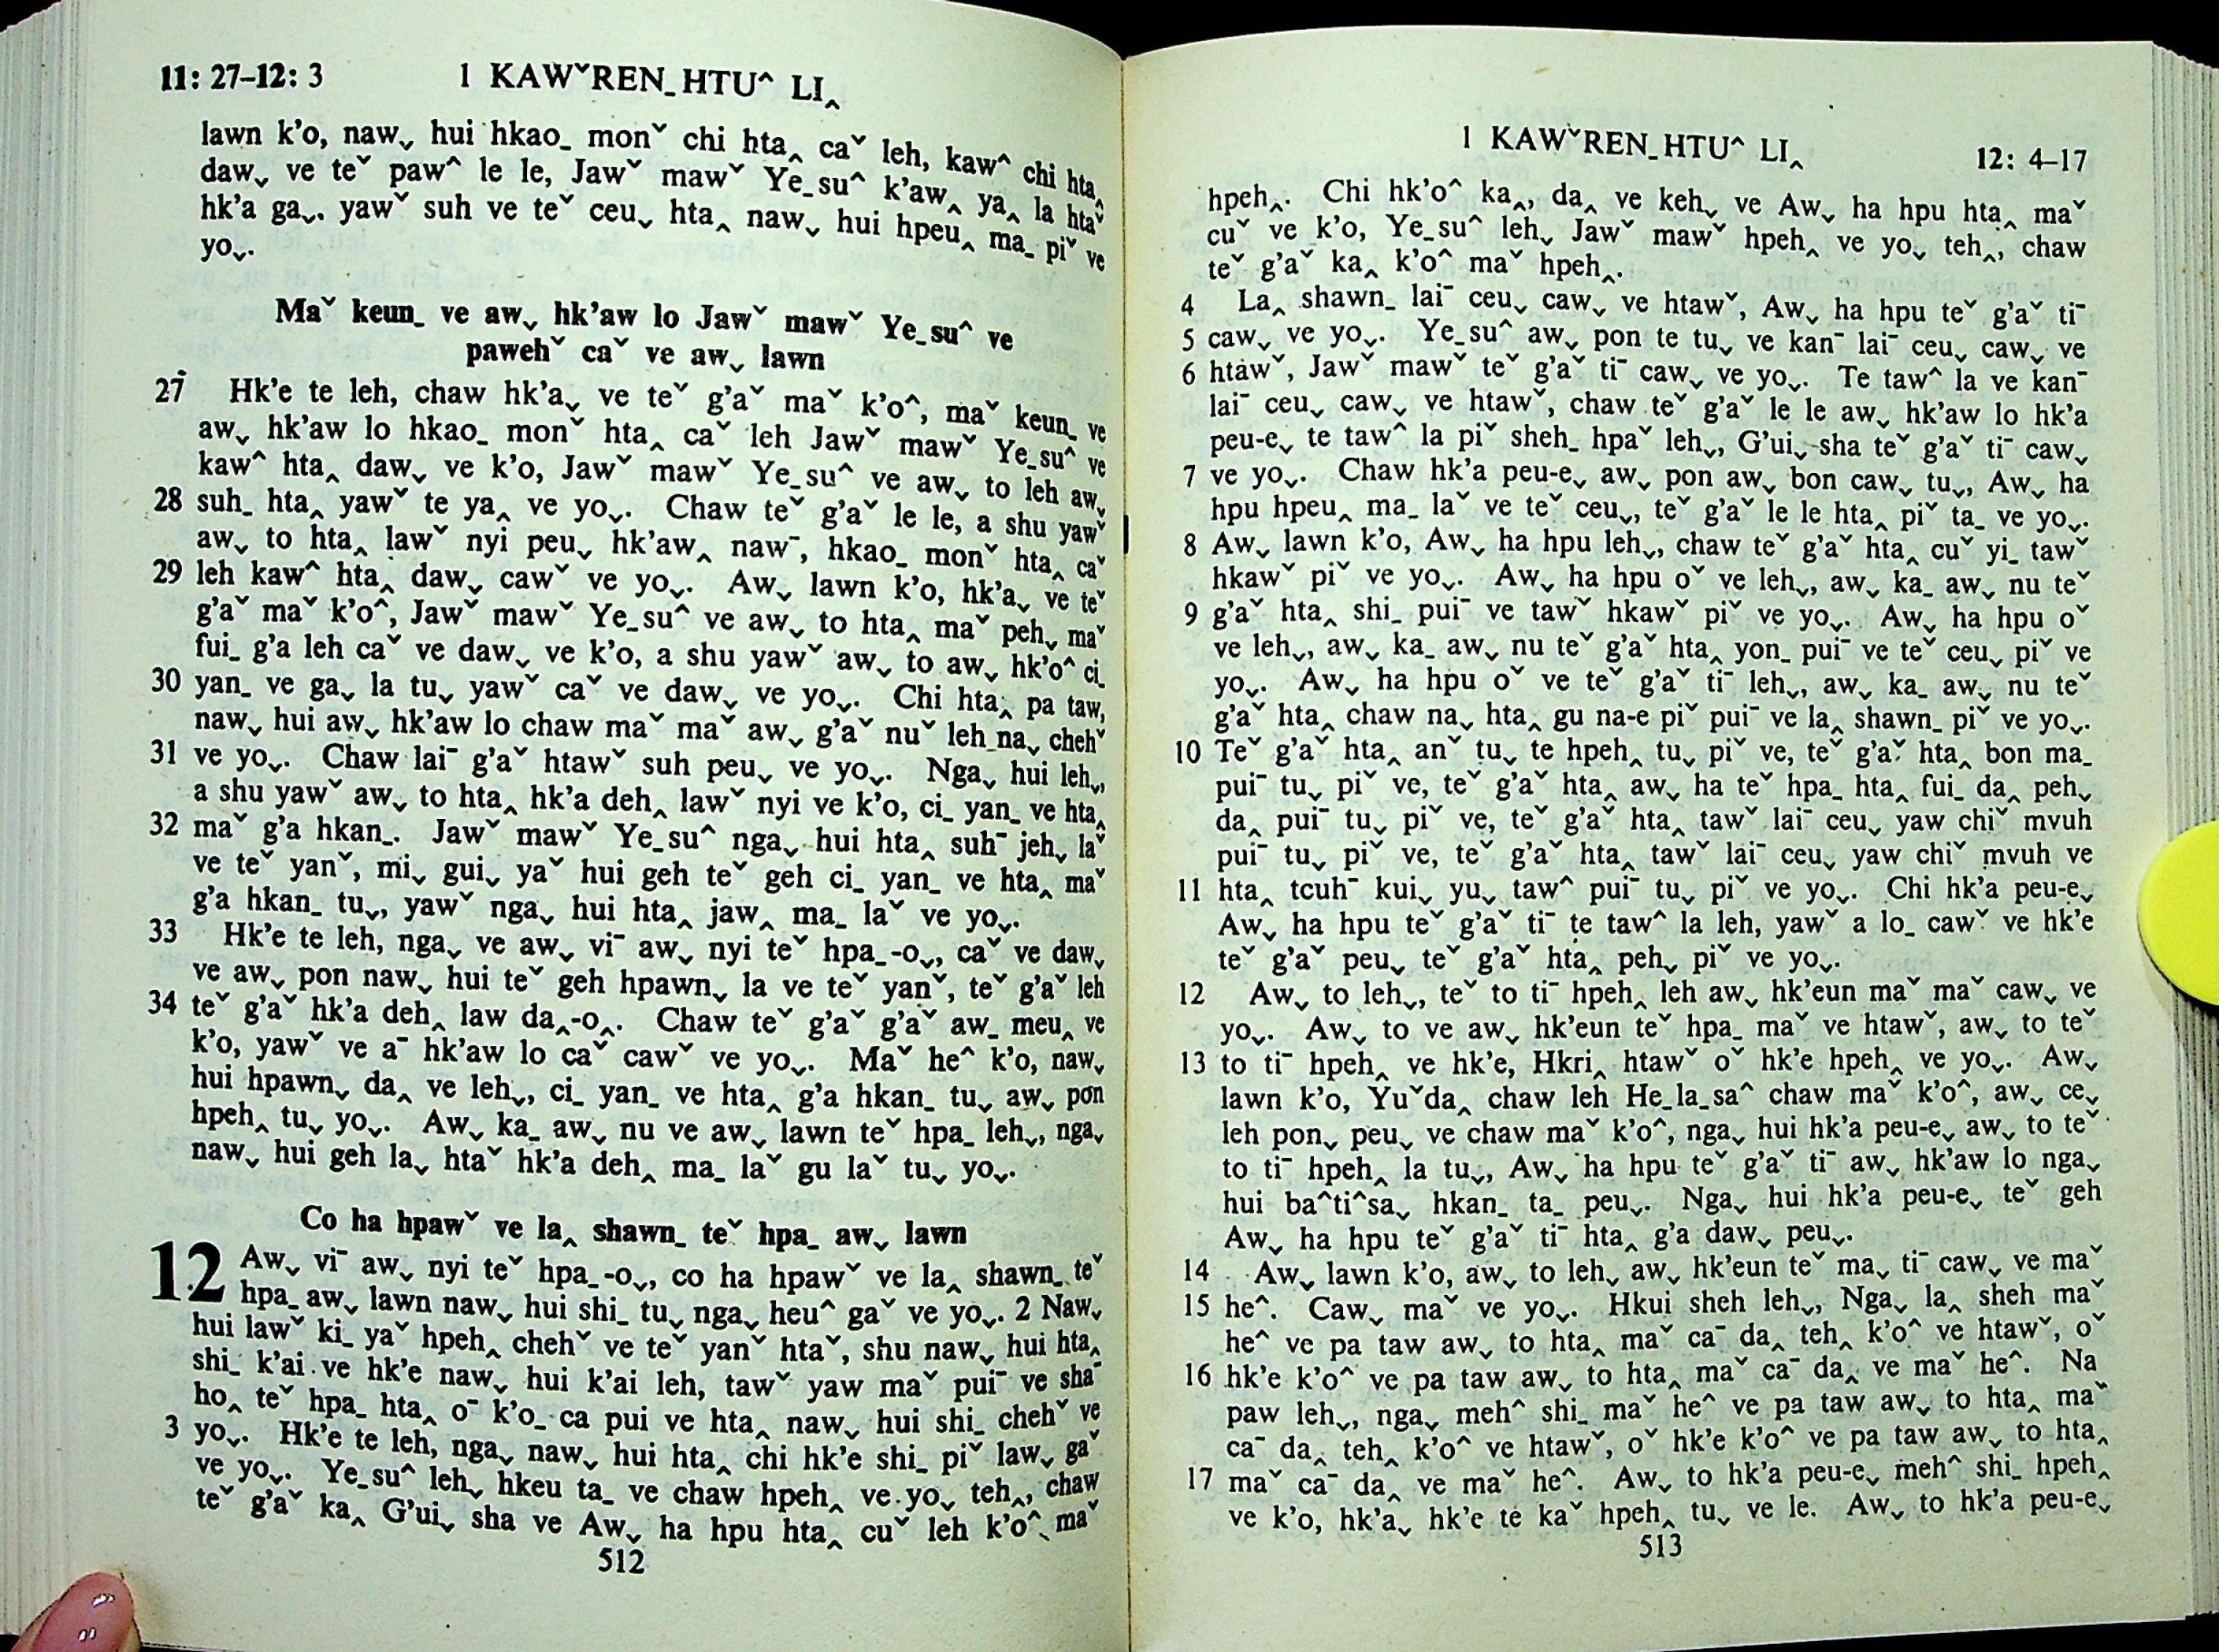 11: 27–12: 3 1 KAWˇREN_HTU^ LI‸
lawn k’o, naw⌄ hui hkao_ monˇ chi hta‸ caˇ leh, kaw^ chi hta‸
daw⌄ ve teˇ paw^ le le, Jawˇ mawˇ Ye_su^ k’aw‸ ya‸ la htaˇ
hk’a ga⌄. yawˇ suh ve teˇ ceu⌄ hta‸ naw⌄ hui hpeu‸ ma_ piˇ ve
yo⌄.
Maˇ keun_ ve aw⌄ hk’aw lo Jawˇ mawˇ Ye_su^ ve
pawehˇ caˇ ve aw⌄ lawn
27 Hk’e te leh, chaw hk’a⌄ ve teˇ g’aˇ maˇ k’o^, maˇ keun_ ve
aw⌄ hk’aw lo hkao_ monˇ hta‸ caˇ leh Jawˇ mawˇ Ye_su^ ve
kaw^ hta‸ daw⌄ ve k’o, Jawˇ mawˇ Ye_su^ ve aw⌄ to leh aw⌄
28 suh_ hta‸ yawˇ te ya‸ ve yo⌄. Chaw teˇ g’aˇ le le, a shu yawˇ
aw⌄ to hta‸ lawˇ nyi peu⌄ hk’aw‸ naw¯, hkao_ monˇ hta‸ caˇ
29 leh kaw^ hta‸ daw⌄ cawˇ ve yo⌄. Aw⌄ lawn k’o, hk’a⌄ ve teˇ
g’aˇ maˇ k’o^, Jawˇ mawˇ Ye_su^ ve aw⌄ to hta‸ maˇ peh⌄ maˇ
fui_ g’a leh caˇ ve daw⌄ ve k’o, a shu yawˇ aw⌄ to aw⌄ hk’o^ ci_
30 yan_ ve ga⌄ la tu⌄ yawˇ caˇ ve daw⌄ ve yo⌄. Chi hta‸ pa taw,
naw⌄ hui aw⌄ hk’aw lo chaw maˇ maˇ aw⌄ g’aˇ nuˇ leh na⌄ chehˇ
31 ve yo⌄. Chaw lai¯ g’aˇ htawˇ suh peu⌄ ve yo⌄. Nga⌄ hui leh⌄,
a shu yawˇ aw⌄ to hta‸ hk’a deh‸ lawˇ nyi ve k’o, ci_ yan_ ve hta‸
32 maˇ g’a hkan_. Jawˇ mawˇ Ye_su^ nga⌄ hui hta‸ suh¯ jeh⌄ laˇ
ve teˇ yanˇ, mi⌄ gui⌄ yaˇ hui geh teˇ geh ci_ yan_ ve hta‸ maˇ
g’a hkan_ tu⌄, yawˇ nga⌄ hui hta‸ jaw‸ ma_ laˇ ve yo⌄.
33 Hk’e te leh, nga⌄ ve aw⌄ vi¯ aw⌄ nyi teˇ hpa_-o⌄, caˇ ve daw⌄
ve aw⌄ pon naw⌄ hui teˇ geh hpawn⌄ la ve teˇ yanˇ, teˇ g’aˇ leh
34 teˇ g’aˇ hk’a deh‸ law da‸-o‸. Chaw teˇ g’aˇ g’aˇ aw_ meu‸ ve
k’o, yawˇ ve a¯ hk’aw lo caˇ cawˇ ve yo⌄. Maˇ he^ k’o, naw⌄
hui hpawn⌄ da‸ ve leh⌄, ci_ yan_ ve hta‸ g’a hkan_ tu⌄ aw⌄ pon
hpeh‸ tu⌄ yo⌄. Aw⌄ ka_ aw⌄ nu ve aw⌄ lawn teˇ hpa_ leh⌄, nga⌄
naw⌄ hui geh la⌄ htaˇ hk’a deh‸ ma_ laˇ gu laˇ tu⌄ yo⌄.
Co ha hpawˇ ve la‸ shawn_ teˇ hpa_ aw⌄ lawn
12 Aw⌄ vi¯ aw⌄ nyi teˇ hpa_-o⌄, co ha hpawˇ ve la‸ shawn_ teˇ
hpa_ aw⌄ lawn naw⌄ hui shi_ tu⌄ nga⌄ heu^ gaˇ ve yo⌄. 2 Naw⌄
hui lawˇ ki_ yaˇ hpeh‸ chehˇ ve teˇ yanˇ htaˇ, shu naw⌄ hui hta‸
shi_ k’ai ve hk’e naw⌄ hui k’ai leh, tawˇ yaw maˇ pui¯ ve sha¯
ho‸ teˇ hpa_ hta‸ o¯ k’o_ ca pui ve hta‸ naw⌄ hui shi_ chehˇ ve
3 yo⌄. Hk’e te leh, nga⌄ naw⌄ hui hta‸ chi hk’e shi_ piˇ law⌄ gaˇ
ve yo⌄. Ye_su^ leh⌄ hkeu ta_ ve chaw hpeh‸ ve yo⌄ teh‸, chaw
teˇ g’aˇ ka‸ G’ui⌄ sha ve Aw⌄ ha hpu hta‸ cuˇ leh k’o^ maˇ
512
1 KAWˇREN_HTU^ LI‸ 12: 4–17
hpeh‸. Chi hk’o^ ka‸, da‸ ve keh⌄ ve Aw⌄ ha hpu hta‸ maˇ
cuˇ ve k’o, Ye_su^ leh⌄ Jawˇ mawˇ hpeh‸ ve yo⌄ teh‸, chaw
teˇ g’aˇ ka‸ k’o^ maˇ hpeh‸.
4 La‸ shawn_ lai¯ ceu⌄ caw⌄ ve htawˇ, Aw⌄ ha hpu teˇ g’aˇ ti¯
5 caw⌄ ve yo⌄. Ye_su^ aw⌄ pon te tu⌄ ve kan¯ lai¯ ceu⌄ caw⌄ ve
6 htawˇ, Jawˇ mawˇ teˇ g’aˇ ti¯ caw⌄ ve yo⌄. Te taw^ la ve kan¯
lai¯ ceu⌄ caw⌄ ve htawˇ, chaw teˇ g’aˇ le le aw⌄ hk’aw lo hk’a
peu-e⌄ te taw^ la piˇ sheh_ hpaˇ leh⌄, G’ui⌄-sha teˇ g’aˇ ti¯ caw⌄
7 ve yo⌄. Chaw hk’a peu-e⌄ aw⌄ pon aw⌄ bon caw⌄ tu⌄, Aw⌄ ha
hpu hpeu‸ ma_ laˇ ve teˇ ceu⌄, teˇ g’aˇ le le hta‸ piˇ ta_ ve yo⌄.
8 Aw⌄ lawn k’o, Aw⌄ ha hpu leh⌄, chaw teˇ g’aˇ hta‸ cuˇ yi_ tawˇ
hkawˇ piˇ ve yo⌄. Aw⌄ ha hpu oˇ ve leh⌄, aw⌄ ka_ aw⌄ nu teˇ
9 g’aˇ hta‸ shi_ pui¯ ve tawˇ hkawˇ piˇ ve yo⌄. Aw⌄ ha hpu oˇ
ve leh⌄, aw⌄ ka_ aw⌄ nu teˇ g’aˇ hta‸ yon_ pui¯ ve teˇ ceu⌄ piˇ ve
yo⌄. Aw⌄ ha hpu oˇ ve teˇ g’aˇ ti¯ leh⌄, aw⌄ ka_ aw⌄ nu teˇ
g’aˇ hta‸ chaw na⌄ hta‸ gu na-e piˇ pui¯ ve la‸ shawn_ piˇ ve yo⌄.
10 Teˇ g’aˇ hta‸ anˇ tu⌄ te hpeh‸ tu⌄ piˇ ve, teˇ g’aˇ hta‸ bon ma_
pui¯ tu⌄ piˇ ve, teˇ g’aˇ hta‸ aw⌄ ha teˇ hpa_ hta‸ fui_ da‸ peh⌄
da‸ pui¯ tu⌄ piˇ ve, teˇ g’aˇ hta‸ tawˇ lai¯ ceu⌄ yaw chiˇ mvuh
pui¯ tu⌄ piˇ ve, teˇ g’aˇ hta‸ tawˇ lai¯ ceu⌄ yaw chiˇ mvuh ve
11 hta‸ tcuh¯ kui⌄ yu⌄ taw^ pui¯ tu⌄ piˇ ve yo⌄. Chi hk’a peu-e⌄
Aw⌄ ha hpu teˇ g’aˇ ti¯ te taw^ la leh, yawˇ a lo_ cawˇ ve hk’e
teˇ g’aˇ peu⌄ teˇ g’aˇ hta‸ peh⌄ piˇ ve yo⌄.
12 Aw⌄ to leh⌄, teˇ to ti¯ hpeh‸ leh aw⌄ hk’eun maˇ maˇ caw⌄ ve
yo⌄. Aw⌄ to ve aw⌄ hk’eun teˇ hpa_ maˇ ve htawˇ, aw⌄ to teˇ
13 to ti¯ hpeh‸ ve hk’e, Hkri‸ htawˇ oˇ hk’e hpeh‸ ve yo⌄. Aw⌄
lawn k’o, Yuˇda‸ chaw leh He_la_sa^ chaw maˇ k’o^, aw⌄ ce⌄
leh pon⌄ peu⌄ ve chaw maˇ k’o^, nga⌄ hui hk’a peu-e⌄ aw⌄ to teˇ
to ti¯ hpeh‸ la tu⌄, Aw⌄ ha hpu teˇ g’aˇ ti¯ aw⌄ hk’aw lo nga⌄
hui ba^ti^sa⌄ hkan_ ta_ peu⌄. Nga⌄ hui hk’a peu-e⌄ teˇ geh
Aw⌄ ha hpu teˇ g’aˇ ti¯ hta‸ g’a daw⌄ peu⌄.
14 Aw⌄ lawn k’o, aw⌄ to leh⌄ aw⌄ hk’eun teˇ ma⌄ ti¯ caw⌄ ve maˇ
15 he^. Caw⌄ maˇ ve yo⌄. Hkui sheh leh⌄, Nga⌄ la‸ sheh maˇ
he^ ve pa taw aw⌄ to hta‸ maˇ ca¯ da‸ teh‸ k’o^ ve htawˇ, oˇ
16 hk’e k’o^ ve pa taw aw⌄ to hta‸ maˇ ca¯ da‸ ve maˇ he^. Na
paw leh⌄, nga⌄ meh^ shi_ maˇ he^ ve pa taw aw⌄ to hta‸ maˇ
ca¯ da‸ teh‸ k’o^ ve htawˇ, oˇ hk’e k’o^ ve pa taw aw⌄ to hta‸
17 maˇ ca¯ da‸ ve maˇ he^. Aw⌄ to hk’a peu-e⌄ meh^ shi_ hpeh‸
ve k’o, hk’a⌄ hk’e te kaˇ hpeh‸ tu⌄ ve le. Aw⌄ to hk’a peu-e⌄
513